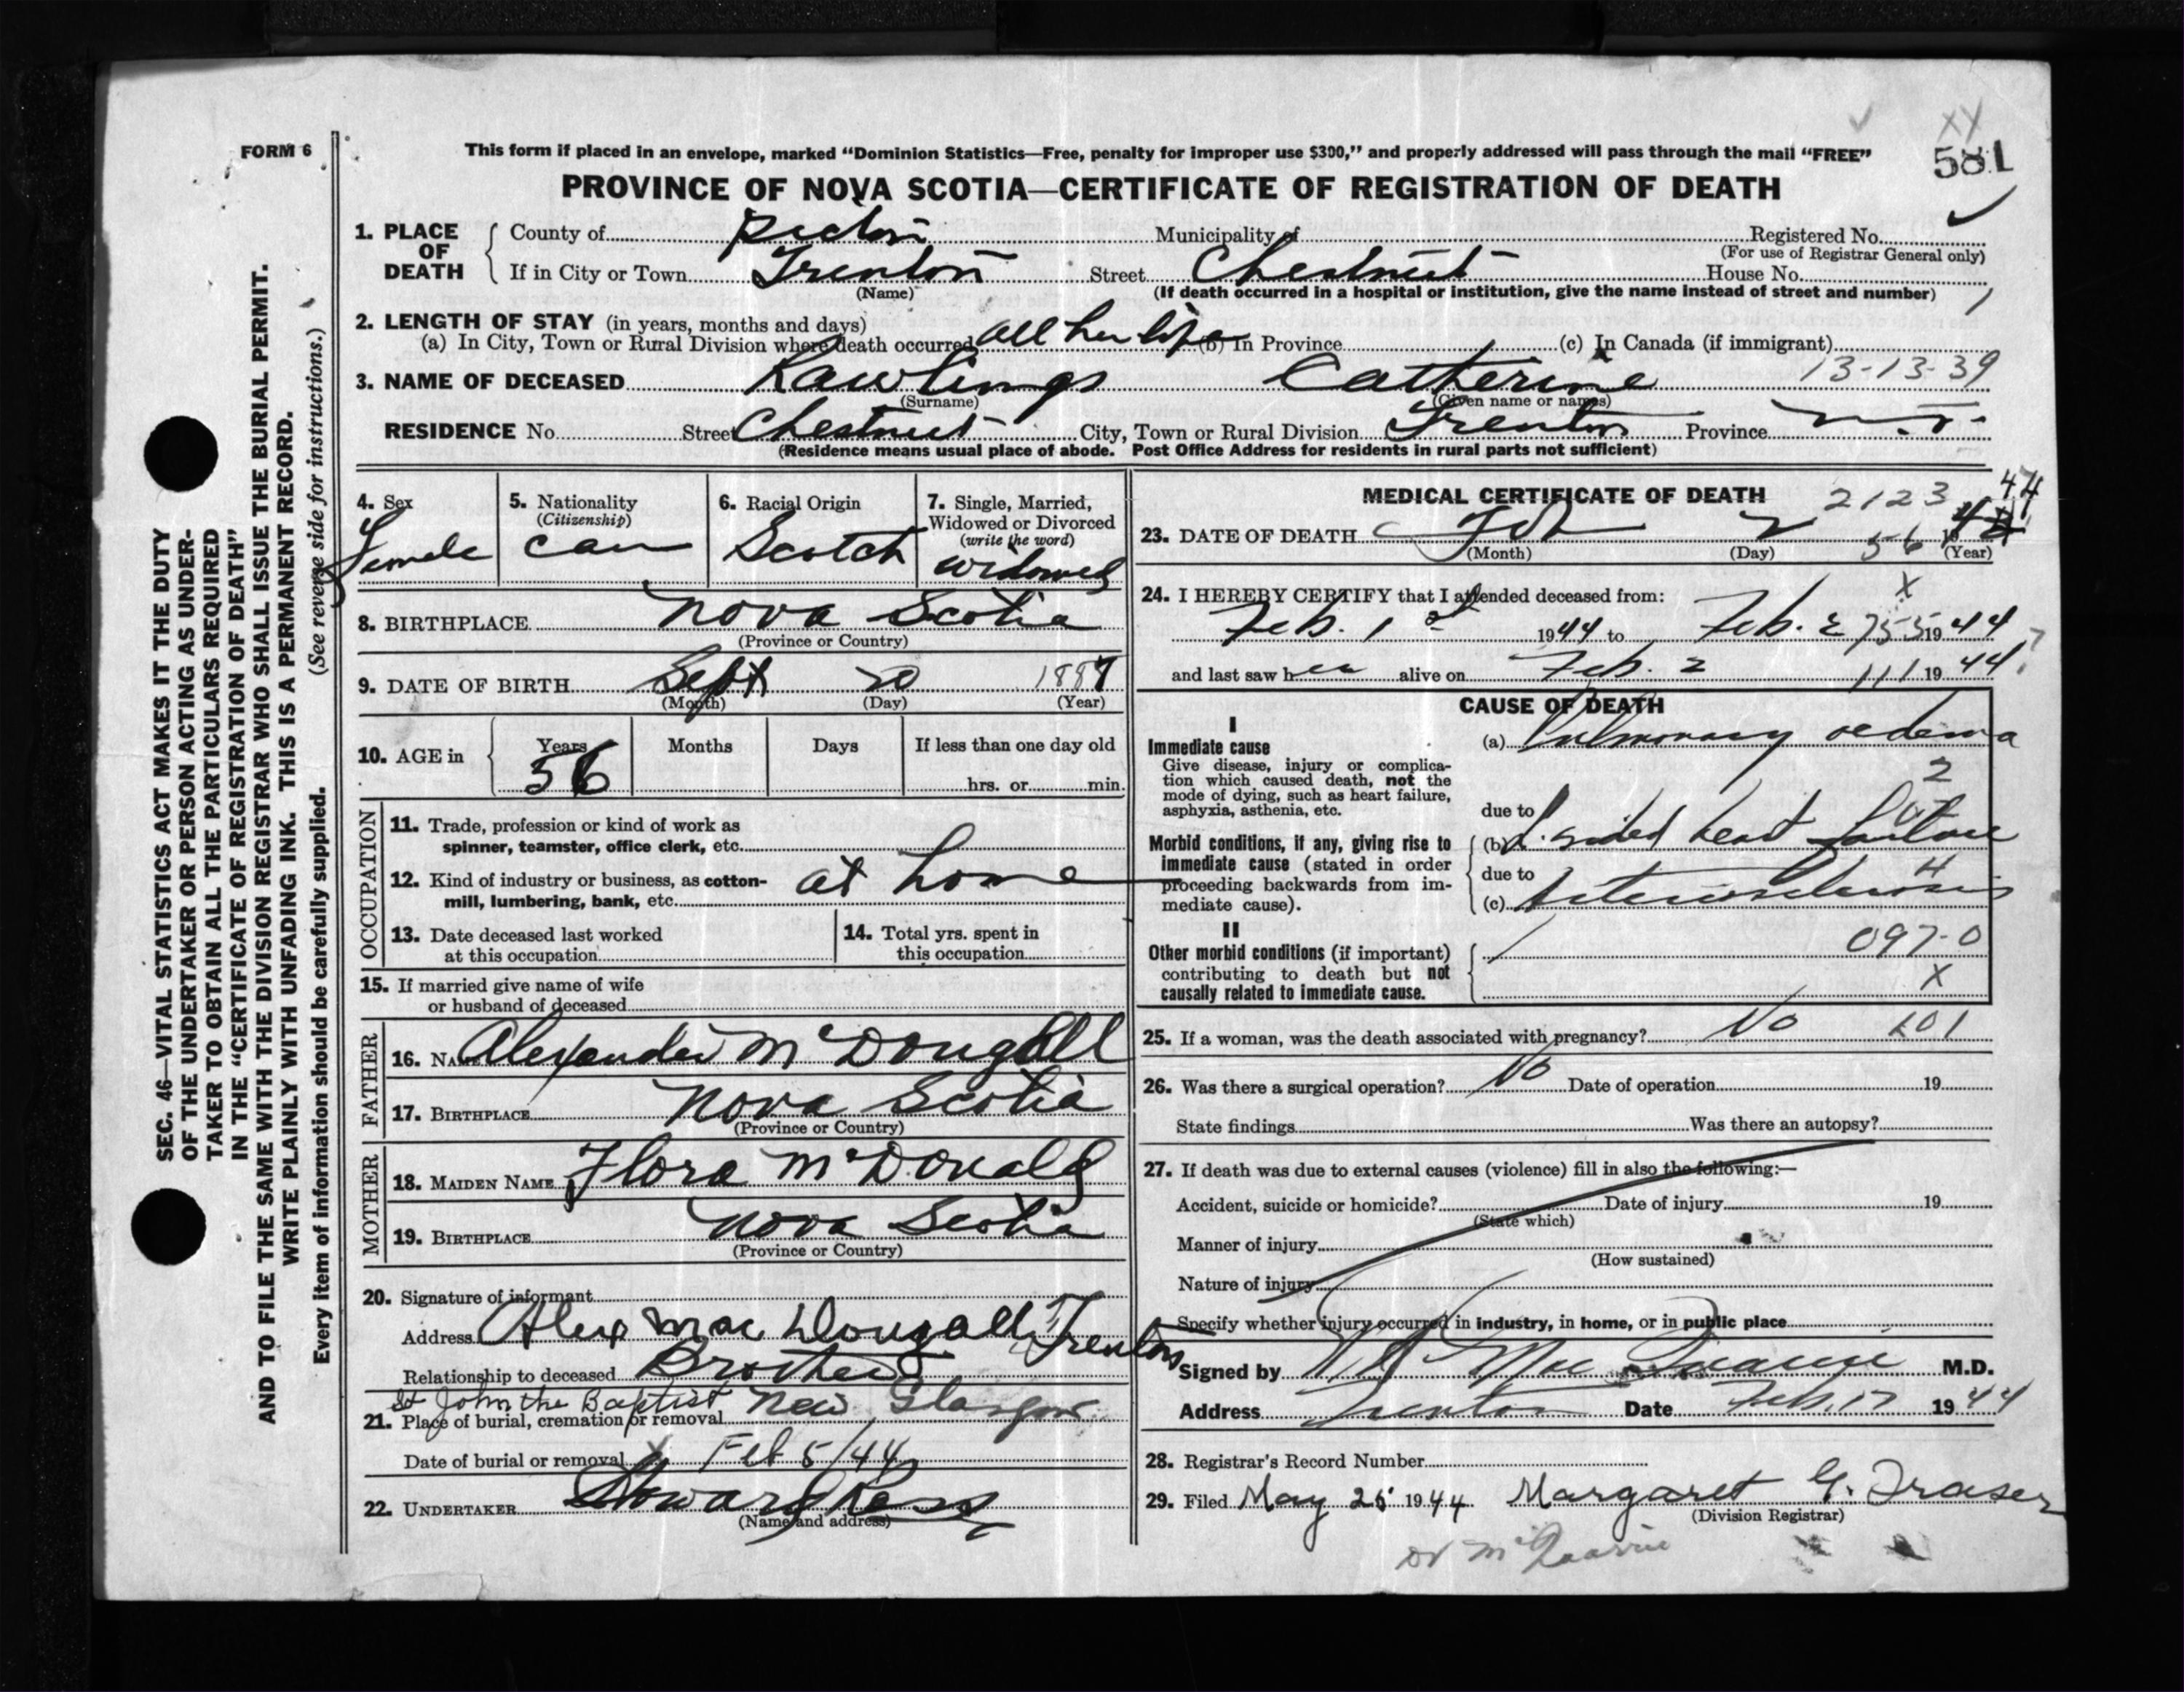 FORM 6
This form if placed in an envelope, marked "Dominion Statistics—Free, penalty for improper use $300," and properly addressed will pass through the mail "FREE"
XX
581
PROVINCE OF NOVA SCOTIA—CERTIFICATE OF REGISTRATION OF DEATH
1. PLACE OF DEATH
County of Pictou Municipality of Registered No.
(For use of Registrar General only)
If in City or Town Trenton Street Chestnut House No.
(Name)
(If death occurred in a hospital or institution, give the name instead of street and number)
2. LENGTH OF STAY (in years, months and days)
(a) In City, Town or Rural Division where death occurred all her life (b) In Province (c) In Canada (if immigrant)
3. NAME OF DECEASED Rawlings Catherine 13-13-39
(Surname) (Given name or names)
RESIDENCE No. Street Chestnut City, Town or Rural Division Trenton Province N.S.
(Residence means usual place of abode. Post Office Address for residents in rural parts not sufficient)
4. Sex
Female
5. Nationality
(Citizenship)
Can
6. Racial Origin
Scotch
7. Single, Married,
Widowed or Divorced
(write the word)
widowed
8. BIRTHPLACE Nova Scotia
(Province or Country)
9. DATE OF BIRTH Sept 20 1887
(Month) (Day) (Year)
10. AGE in
Years Months Days If less than one day old
56 hrs. or min.
OCCUPATION
11. Trade, profession or kind of work as
spinner, teamster, office clerk, etc.
12. Kind of industry or business, as cotton-
mill, lumbering, bank, etc. at home
13. Date deceased last worked
at this occupation
14. Total yrs. spent in
this occupation
15. If married give name of wife
or husband of deceased
FATHER
16. NAME Alexander McDougall
17. BIRTHPLACE Nova Scotia
(Province or Country)
MOTHER
18. MAIDEN NAME Flora McDonald
19. BIRTHPLACE Nova Scotia
(Province or Country)
20. Signature of informant
Address Alex MacDougall Trenton
Relationship to deceased Brother
St John the Baptist New Glasgow
21. Place of burial, cremation or removal
Date of burial or removal Feb 5/44
22. UNDERTAKER Howard
(Name and address)
MEDICAL CERTIFICATE OF DEATH 2123
44
23. DATE OF DEATH Feb 2 56 19
(Month) (Day) (Year)
24. I HEREBY CERTIFY that I attended deceased from: X
Feb. 1st 1944 to Feb. 2 755 1944
and last saw her alive on Feb. 2 111 1944
CAUSE OF DEATH
I
Immediate cause
Give disease, injury or complica-
tion which caused death, not the
mode of dying, such as heart failure,
asphyxia, asthenia, etc.
(a) Pulmonary oedema
2
due to
Morbid conditions, if any, giving rise to
immediate cause (stated in order
proceeding backwards from im-
mediate cause).
(b) L. sided heart failure
due to
4
(c) Arteriosclerosis
II
Other morbid conditions (if important)
contributing to death but not
causally related to immediate cause.
097-0
X
25. If a woman, was the death associated with pregnancy? No 101
26. Was there a surgical operation? No Date of operation 19
State findings Was there an autopsy?
27. If death was due to external causes (violence) fill in also the following:—
Accident, suicide or homicide? Date of injury 19
(State which)
Manner of injury
(How sustained)
Nature of injury
Specify whether injury occurred in industry, in home, or in public place
Signed by MacQuarrie M.D.
Address Trenton Date Feb. 17 1944
28. Registrar's Record Number
29. Filed May 25 1944 Margaret G. Fraser
(Division Registrar)
Dr McQuarrie
SEC. 46—VITAL STATISTICS ACT MAKES IT THE DUTY
OF THE UNDERTAKER OR PERSON ACTING AS UNDER-
TAKER TO OBTAIN ALL THE PARTICULARS REQUIRED
IN THE "CERTIFICATE OF REGISTRATION OF DEATH"
AND TO FILE THE SAME WITH THE DIVISION REGISTRAR WHO SHALL ISSUE THE BURIAL PERMIT.
WRITE PLAINLY WITH UNFADING INK. THIS IS A PERMANENT RECORD.
Every item of information should be carefully supplied. (See reverse side for instructions.)